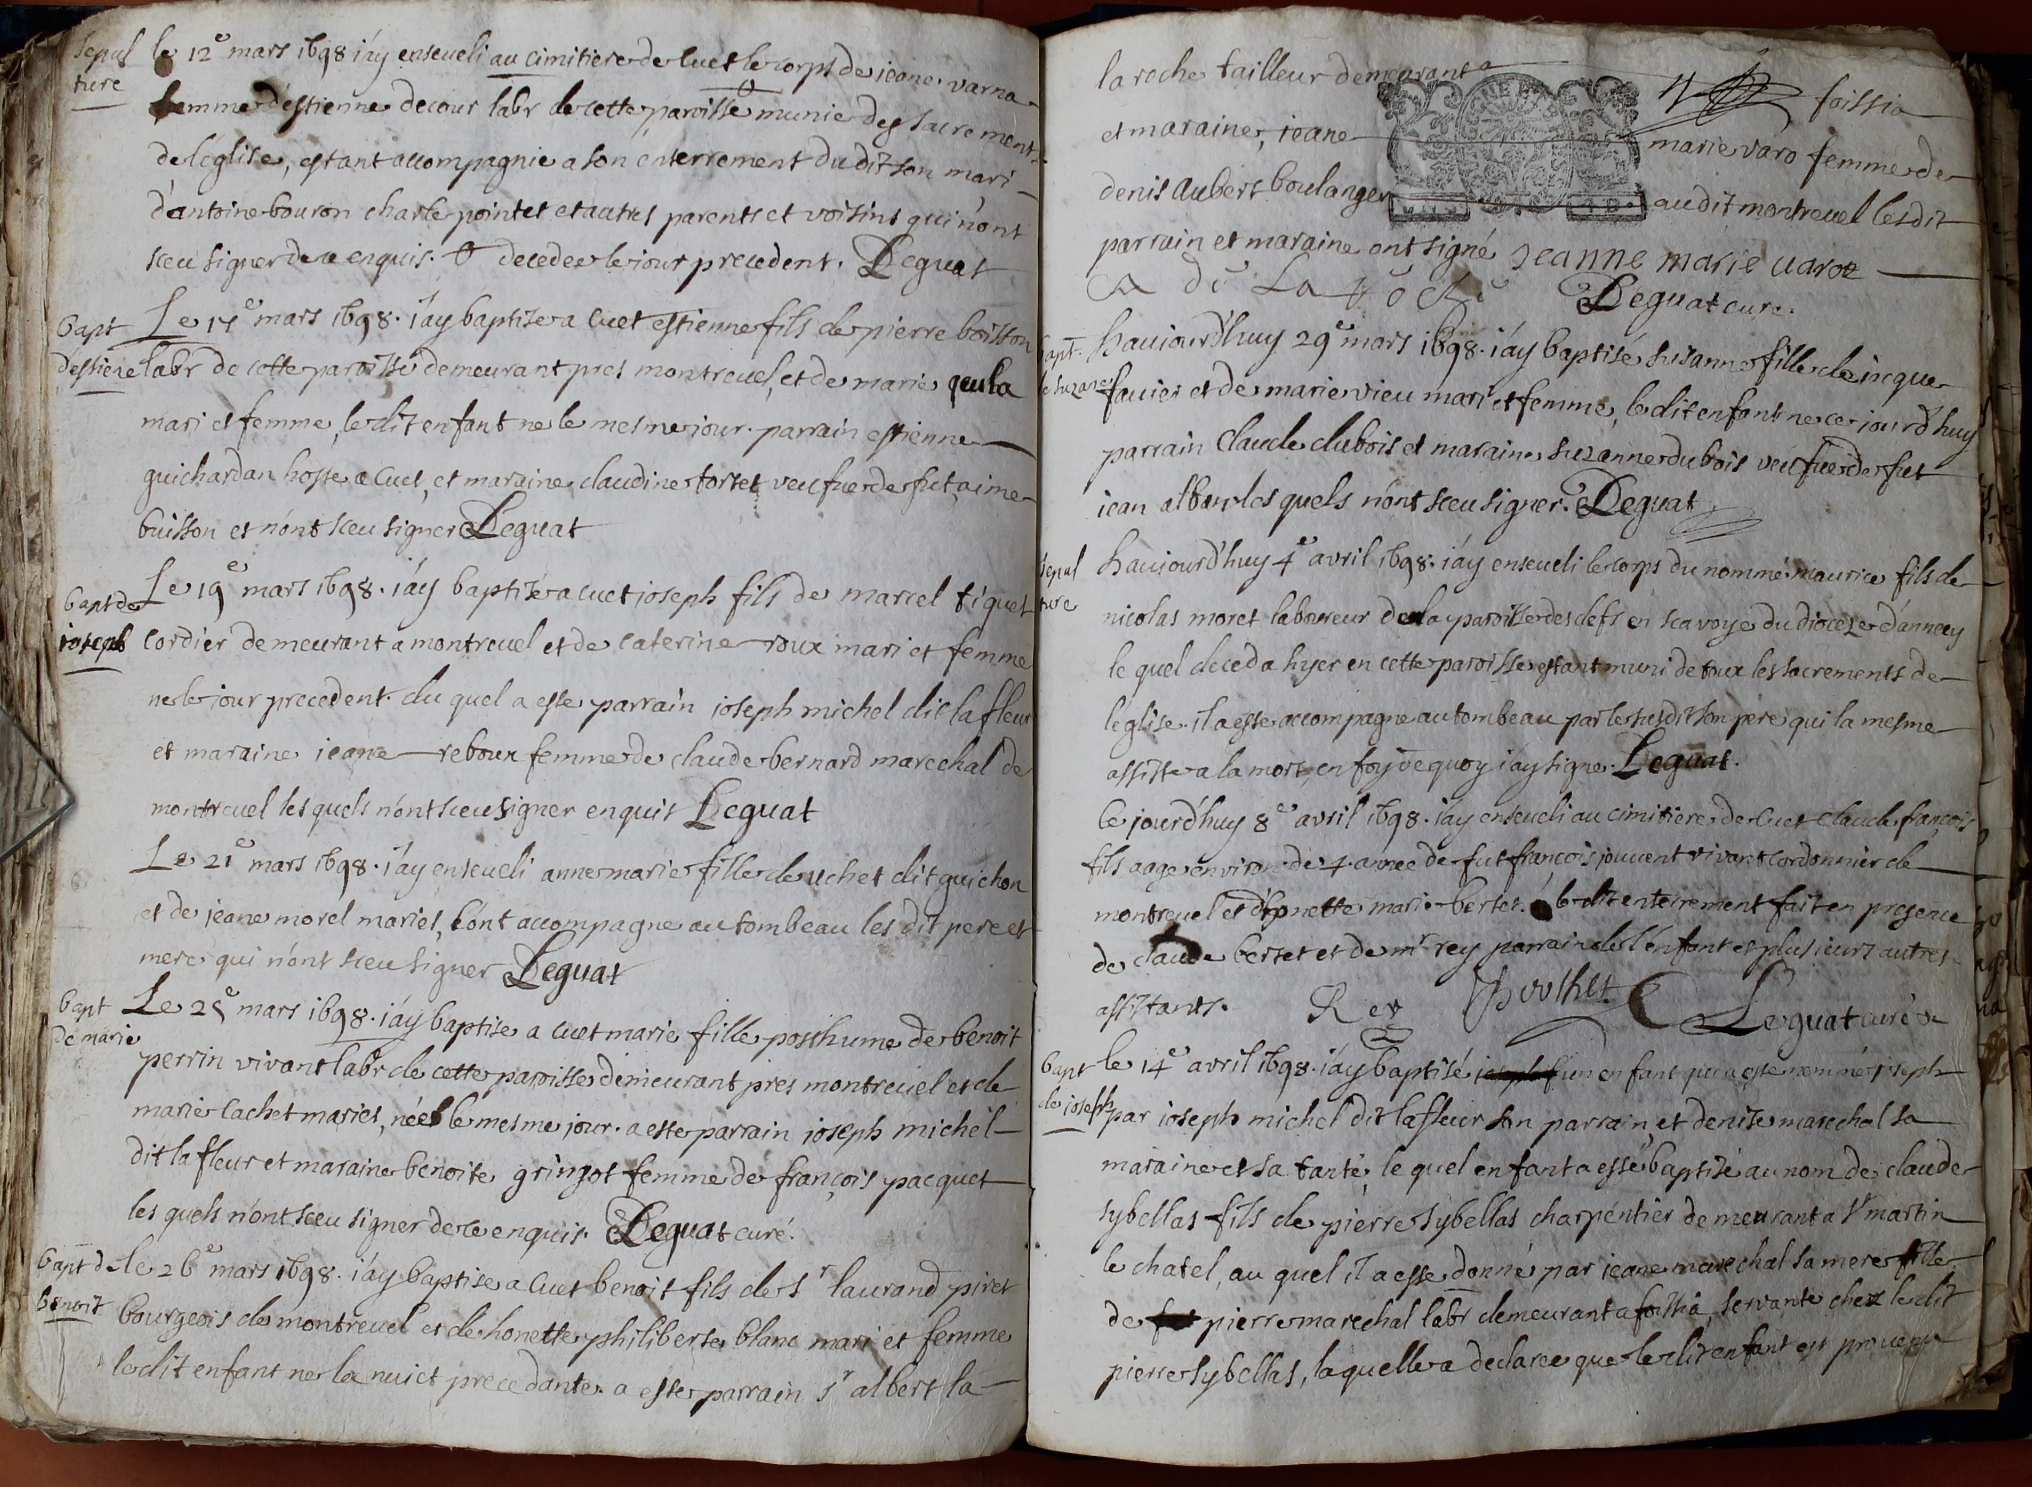 sepul
ture
le 12e mars 1698 i'ay enseueli au cimitiere de Cuet le corps de ieane varna
femme d'estienne decour labr de cette paroisse munie des sacrements
de l'eglise, estant accompagnie a son enterrement du dit son mari
d'antoine bouron charle pointet et autres parents et voisins qui n'ont
sceu signer de ce enquis. decedee le iour precedent. Deguat
bapt
d'estiene
Le 17e mars 1698. i'ay baptisé a Cuet estienne fils de pierre boisson
labr de cette paroisse demeurant pres montreuel, et de marie
mari et femme, le dit enfant ne le mesme iour. parrain estienne
guichardan hoste a Cuet, et maraine claudine tortet veufue de fut aime
buisson et n'ont sceu signer Deguat
bapt de
ioseph
Le 19e mars 1698. i'ay baptisé a Cuet ioseph fils de marcel tiquet
cordier demeurant a montreuel et de caterine roux mari et femme
ne le iour precedent. du quel a esté parrain ioseph michel dit la fleur
et maraine ieane reboux femme de claude bernard marechal de
montreuel les quels n'ont sceu signer enquis Deguat
Le 21e mars 1698. i'ay enseueli anne marie fille de uchet dit guichon
et de ieane morel maries, l'ont accompagne au tombeau les dit pere et
mere qui n'ont sceu signer Deguat
bapt
de marie
Le 25e mars 1698. i'ay baptisé a Cuet marie fille posthume de benoit
perrin vivant labr de cette paroisse demeurant pres montreuel et de
marie cachet maries, née le mesme jour. a esté parrain ioseph michel
dit la fleur et maraine benoite gringot femme de françois pacquet
les quels n'ont sceu signer de ce enquis. Deguat curé.
bapt de
benoit
le 26e mars 1698. i'ay baptisé a Cuet benoit fils de sr laurand piret
bourgeois de montreuel et de honette philiberte blanc mari et femme
le dit enfant ne la nuict precedante. a esté parrain sr albert la
la roche tailleur demeurant a foissia
et maraine, ieane marie varo femme de
denis aubert boulanger audit montreuel lesdit
parrain et maraine ont signé Jeanne marie varoz
A de La Roche Deguat curé.
bapt.
de suzane
haujourd'huy 29e mars 1698. i'ay baptisé susanne fille de iacque
fauier et de marie vieu mari et femme, le dit enfant ne ce iourd'huy
parrain Claude dubois et maraine suzanne dubois veufue de fut
iean alban les quels n'ont sceu signer. Deguat
sepul
ture
haujourd'huy 4e avril 1698. i'ay enseueli le corps du nommé maurice fils de
nicolas moret laboureur de la paroisse des clefs en scavoye du diocese d'annecy
le quel deceda hyer en cette paroisse estant muni de toux les sacrements de
l'église. il a esté accompagne au tombeau par le susdit son pere qui la mesme
assisté a la mort, en foy de quoy i'ay signer. Deguat.
le jourd'huy 8e avril 1698. i'ay enseueli au cimitiere de Cuet claude françois
fils aage environ de 4 année de fut françois jouuent vivant cordonnier de
montreuel et d'honette marie bertet. le dit enterrement fait en presence
de claude bertet et de mr rey parrain de l'enfant et plusieurs autres
assistants. Rey Deguat curé
bapt
de ioseph
le 14e avril 1698. i'ay baptisé un enfant qui a esté nommé ioseph
par ioseph michel dit lafleur son parrain et denise marechal sa
maraine et sa tante, le quel enfant a esté baptisé au nom de claude
sybellas fils de pierre sybellas charpentier demeurant a st martin
le chatel, au quel il a esté donné par ieane marechal sa mere fille
de pierre marechal labr demeurant a foissia, servante chez le dit
pierre sybellas, laquelle a declaree que le dit enfant est provenu